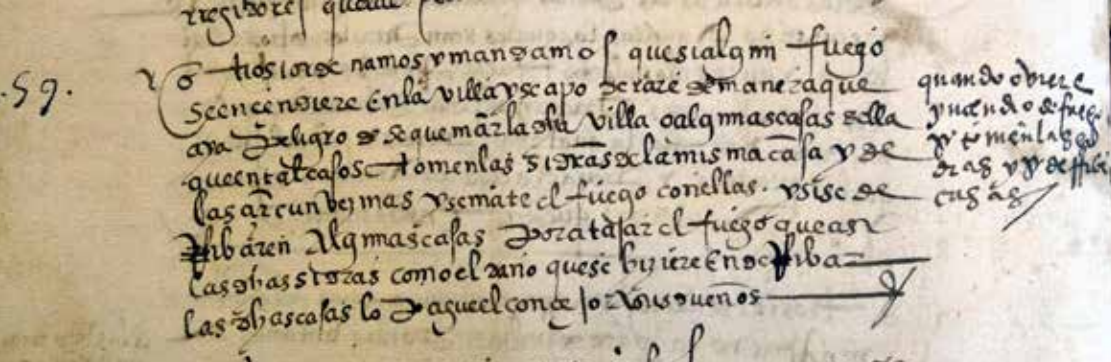 .59.
otrosi ordenamos y mandamos que si algun fuego
se encendiere en la villa y se apoderare de manera que
aya peligro de se quemar la dha villa o algunas casas della
que en tal caso se tomen las sidras de la misma casa y de
las circunvezinas y se mate el fuego con ellas. y si se de
rribaren algunas casas por atajar el fuego que asi
las dhas sidras como el daño que se hiziere en derribar
las dhas casas lo pague el concejo a sus dueños
quando obiere
yncendio de fuego
se tomen las si
dras y se derriben
casas